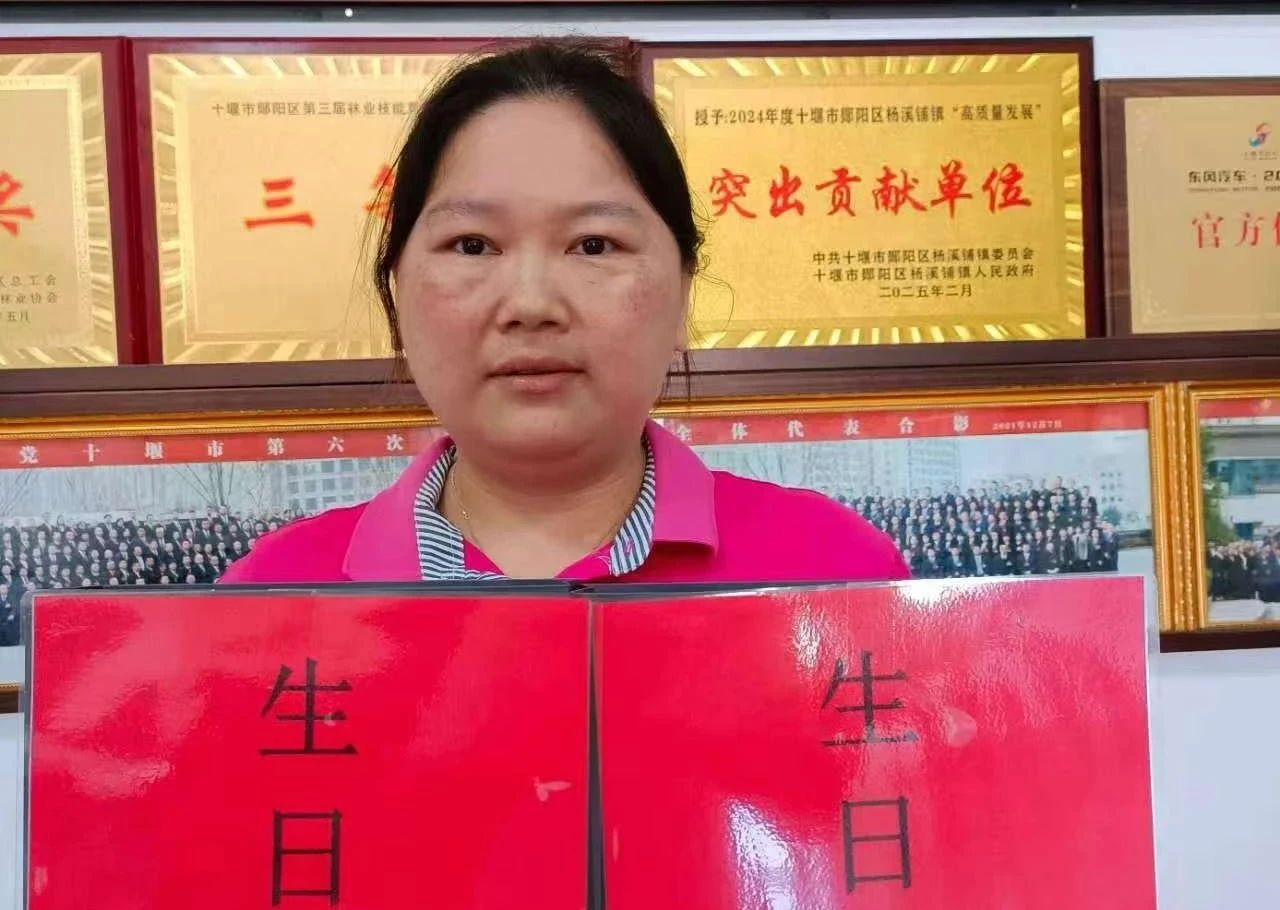 奖
区总工会
林业协会
五月
十堰市郧阳区第三届林业技能竞
三等
授予:2024年度十堰市郧阳区杨溪铺镇“高质量发展”
突出贡献单位
中共十堰市郧阳区杨溪铺镇委员会
十堰市郧阳区杨溪铺镇人民政府
二〇二五年二月
东风汽车·20
官方
党十堰市第六次
全体代表合影 2021年12月7日
生日
生日